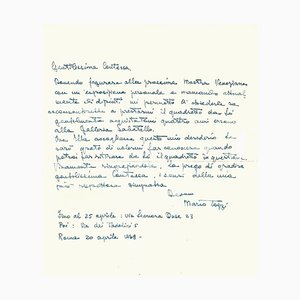 Gentilissima Contessa,
Dovendo figurare alla prossima Mostra Veneziana
con un'esposizione personale e mancando attual-
mente di dipinti mi permetto di chiederle se
acconsentirebbe a prestarmi il quadretto da lei
gentilmente acquistato quattro anni or sono
alla Galleria Sabatello.
Se Ella accogliesse questo mio desiderio le
sarei grato di volermi far conoscere quando
potrei far ritirare da lei il quadretto in questione.
Vivamente ringraziandola, la prego di gradire
gentilissima Contessa, i sensi della mia
più rispettosa simpatia
Devmo
Mario Tozzi
Fino al 25 aprile : Via Eleonora Duse 23
Poi : Via dei
Roma 20 aprile